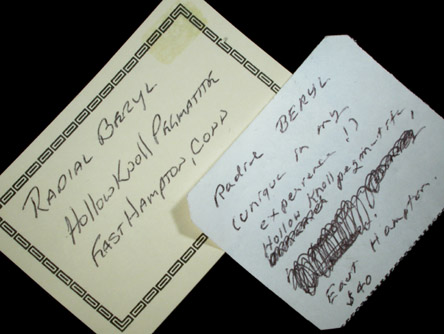 RADIAL BERYL
Hollow Knoll PEGMATITE
EAST HAMPTON, CONN
Radial BERYL
(unique in my
experience!)
Hollow Knoll pegmatite,
East Hampton.
$40